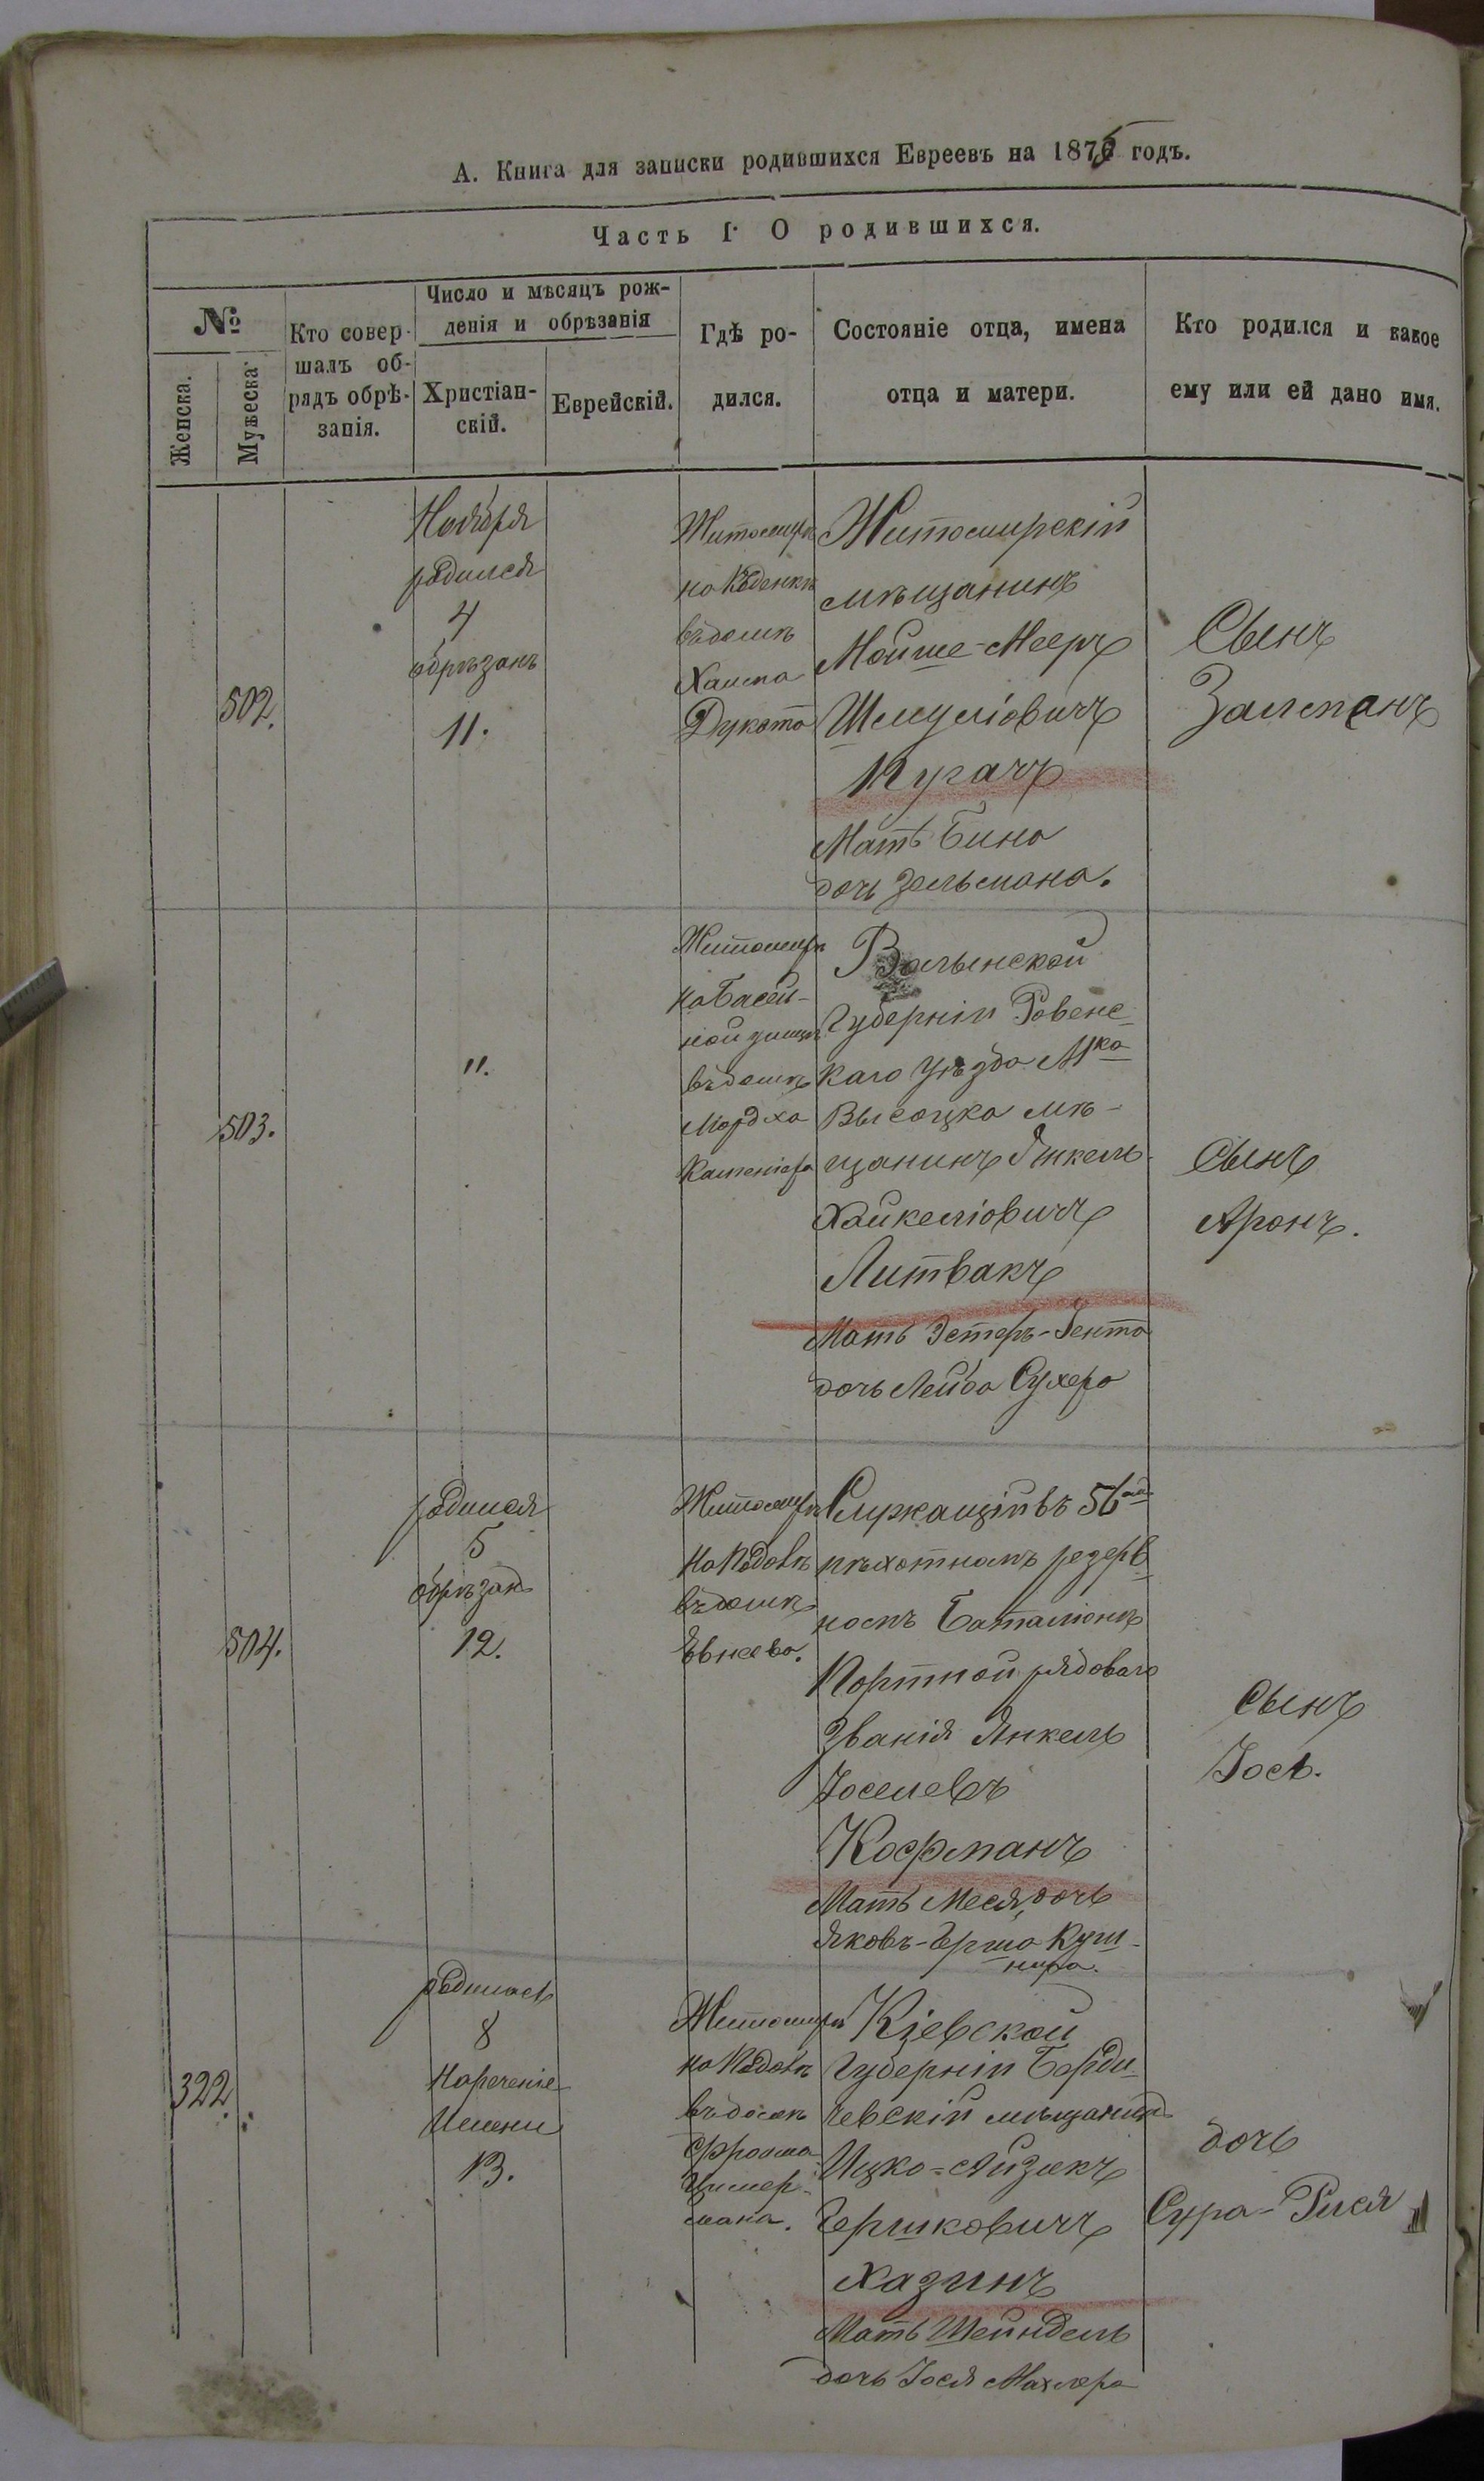 А. Книга для записки родившихся Евреевъ на 1875 годъ.
Часть I. О родившихся.
№
Женска.
Мужеска.
Кто совер-
шалъ об-
рядъ обрѣ-
занія.
Число и мѣсяцъ рож-
денія и обрѣзанія
Христіан-
скій.
Еврейскій.
Гдѣ ро-
дился.
Состояніе отца, имена
отца и матери.
Кто родился и какое
ему или ей дано имя.
502.
Ноября
родился
4
обрѣзанъ
11.
Житомиръ
на
въ домѣ
Хаима
Дуката
Житомирскій
мѣщанинъ
Мойше-Мееръ
Шмуліовичъ
Кугачъ
Мать Бина
дочь Зельмана.
Сынъ
Залманъ
503.
11.
Житомиръ
на Басей-
ной улицѣ
въ домѣ
Мордха
Волынской
Губерніи Ровенс-
каго уѣзда Мка
Высоцка мѣ-
щанинъ Янкель
Хайкеліовичъ
Литвакъ
Мать Эстеръ-Гента
дочь Лейба Сухера
Сынъ
Аронъ.
504.
родился
5
обрѣзанъ
12.
Житомиръ
на
въ домѣ
Служащій въ 56мъ
пѣхотномъ резерв-
номъ Баталіонѣ
Портной рядоваго
званія Янкель
Іоселевъ
Кофманъ
Мать Мася, дочь
Яковъ-Герша Куш-
нира.
Сынъ
Іось.
322.
родилась
8
Нареченіе
Имени
13.
Житомиръ
на
въ домѣ
Фроима
Цимер-
мана.
Кіевской
Губерніи Берди-
чевскій мѣщанинъ
Ицко-Айзикъ
Гершковичъ
Хазинъ
Мать Шейндель
дочь Іося Махлера
дочь
Сура-Рися